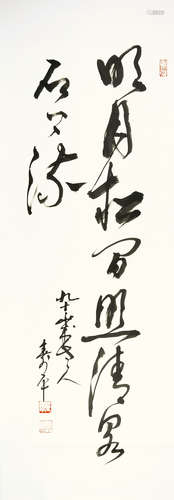 明月松間照清泉
石上流
九十叟老人
壽平